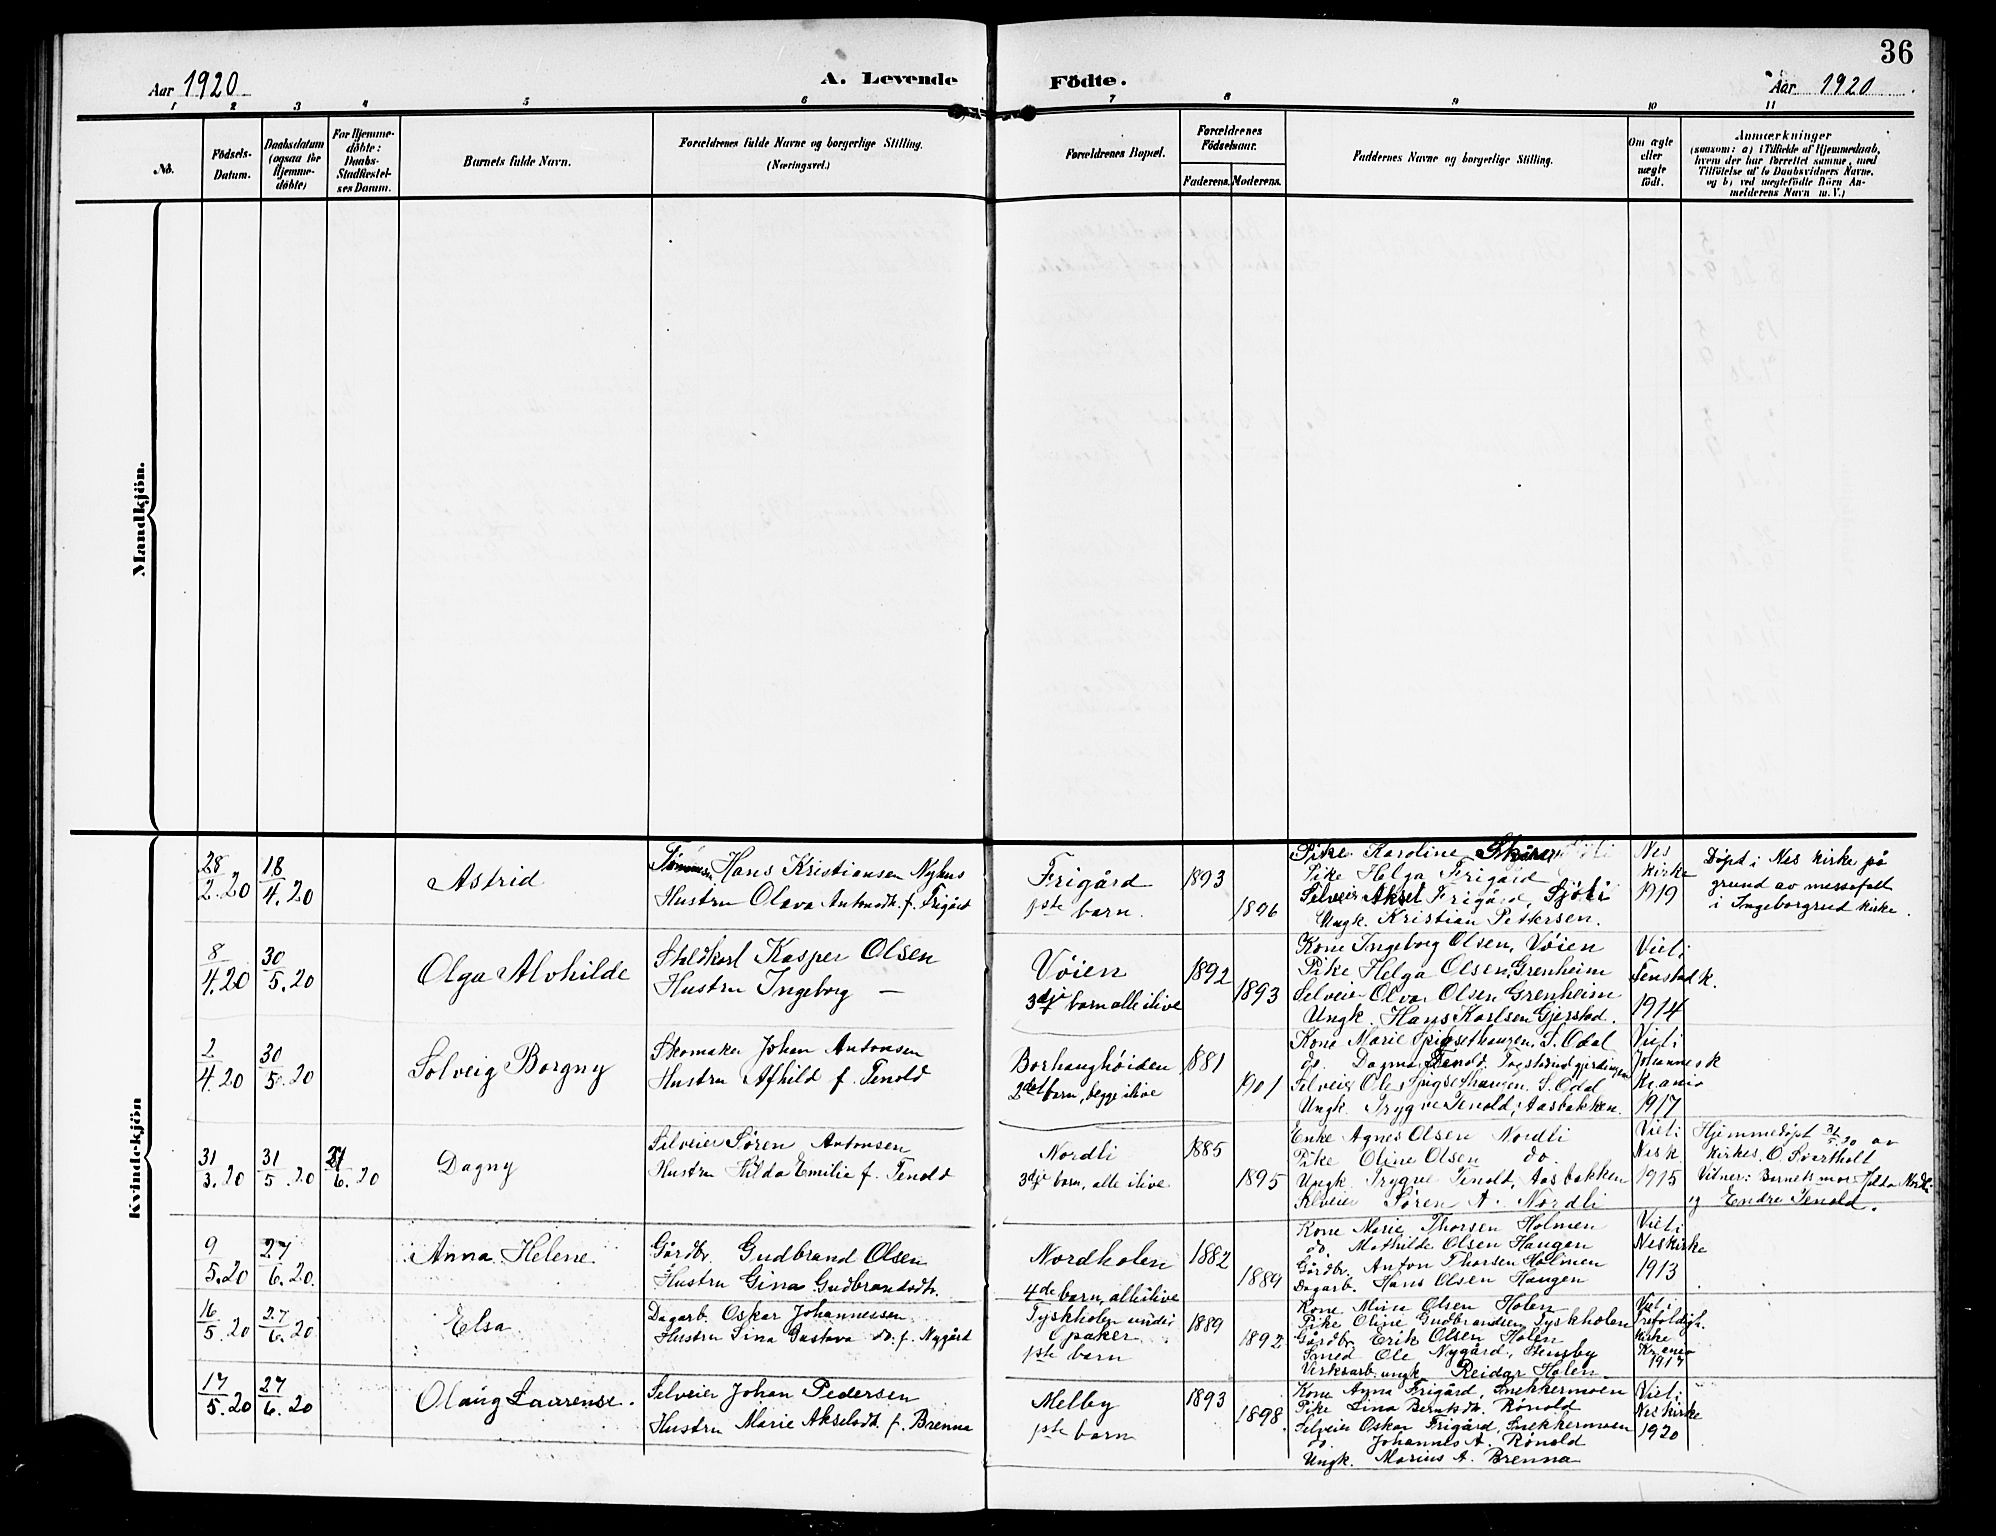 36
Aar 1920
A. Levende
Födte.
Aar 1920
1 2 3 4 5 6 7 8 9 10 11
No.
Födsels-
Datum.
Daabsdatum
(ogsaa for
Hjemme-
döbte)
For Hjemme-
döbte:
Daabs-
Stadfæstel-
ses Datum.
Barnets fulde Navn.
Forældrenes fulde Navne og borgerlige Stilling.
(Næringsvei.)
Forældrenes Bopæl.
Forældrenes
Födselsaar.
Faderens.
Moderens.
Faddernes Navne og borgerlige Stilling.
Om ægte
eller
uægte
födt.
Anmærkninger
(saasom: a) i Tilfælde af Hjemmedaab,
hvem der har forrettet samme, med
Tilföielse af to Daabsvidners Navne,
og b) ved uægtefödte Börn An-
melderens Navn m. V.)
Mandkjön.
Kvindekjön
28/2.20
18/4.20
Astrid
Hans Kristiansen Nyhus
Hustru Olava Antonsdt. f. Frigård
Frigård
1ste barn.
1893
1896
Pike Karoline
Pike Helga Frigård
Selveier Aksel Frigård, Sjöli
Ungk. Kristian Pettersen.
Nes
Kirke
1919
Döpt i Nes kirke på
grund av messefall
i Ingeborgrud kirke.
8/4.20
30/5.20
Olga Alvhilde
Staldkarl Kasper Olsen
Hustru Ingeborg —
Vöien
3dje barn alle ilive
1892
1893
Kone Ingeborg Olsen, Vöien
Pike Helga Olsen, Grenheim
Selveier Olva Olsen Grenheim
Ungk. Hans Karlsen Gjerstad.
Viet i
Tenstad k.
1914
2/4.20
30/5.20
Solveig Borgny
Skomaker Johan Antonsen
Hustru Afhild f. Tenold
Borhaughöiden
2det barn, begge ilive
1881
1901
Kone Marie Spigsethaugen, S. Odal
do. Dagmar Tenold.
Selveier Ole Spigsethaugen, S. Odal
Ungk. Trygve Tenold, Aasbakken.
Viet i
Johannes k
Kr.ania
1917
31/3.20
31/5.20
6.20
Dagny
Selveier Sören Antonsen
Hustru Hilda Emilie f. Tenold
Nordli
3dje barn, alle ilive
1885
1895
Enke Agnes Olsen Nordli
Pike Oline Olsen do.
Ungk. Trygve Tenold, Aasbakken
Selveier Sören A. Nordli
Viet i
Nes k
1915
Hjemmedöpt 31/5.20 av
Kirkes. O. Svartholt
Vitner: Barnets mor Hilda Nordli
og Endre Tenold.
9/5.20
27/6.20.
Anna Helene
Gårdbr. Gudbrand Olsen
Hustru Gina Gudbrandsdtr.
Nordholen
4de barn, alle ilive
1882
1889
Kone Marie Thorsen Holmen
do. Mathilde Olsen Haugen
Gårdbr. Anton Thorsen Holmen
Dagarb. Hans Olsen Haugen
Viet i
Nes kirke
1913
16/5.20
27/6.20
Elsa
Dagarb. Oskar Johannessen
Hustru Lina Gustava do. f. Nygård
Tyskholen under
Spaker
1ste barn
1889
1892
Kone Mina Olsen Holen
Pike Oline Gudbrandsen Tyskholen
Gårdbr. Erik Olsen Holen
Smed Ole Nygård, Stensby
Verksarb. ungk. Reidar Holen
Viet i
Trefoldigh.
Kirke
Kr.ania
1917
17/5.20
27/6.20
Olaug Laurense.
Selveier Johan Pedersen
Hustru Marie Akselsdt. f. Brenna
Melby
1ste barn
1893
1898.
Kone Anna Frigård, Snekkermoen
Pike Lina Berntsdt. Rönold
Selveier Oskar Frigård, Snekkermoen
do. Johannes A. Rönold
Ungk. Marius A. Brenna
Viet i
Nes kirke
1920